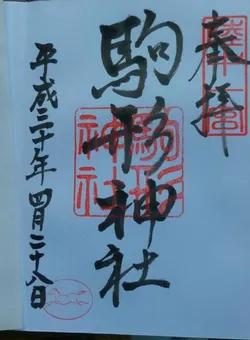 奉拝
駒形神社
平成三十年四月二十八日
駒形
神社